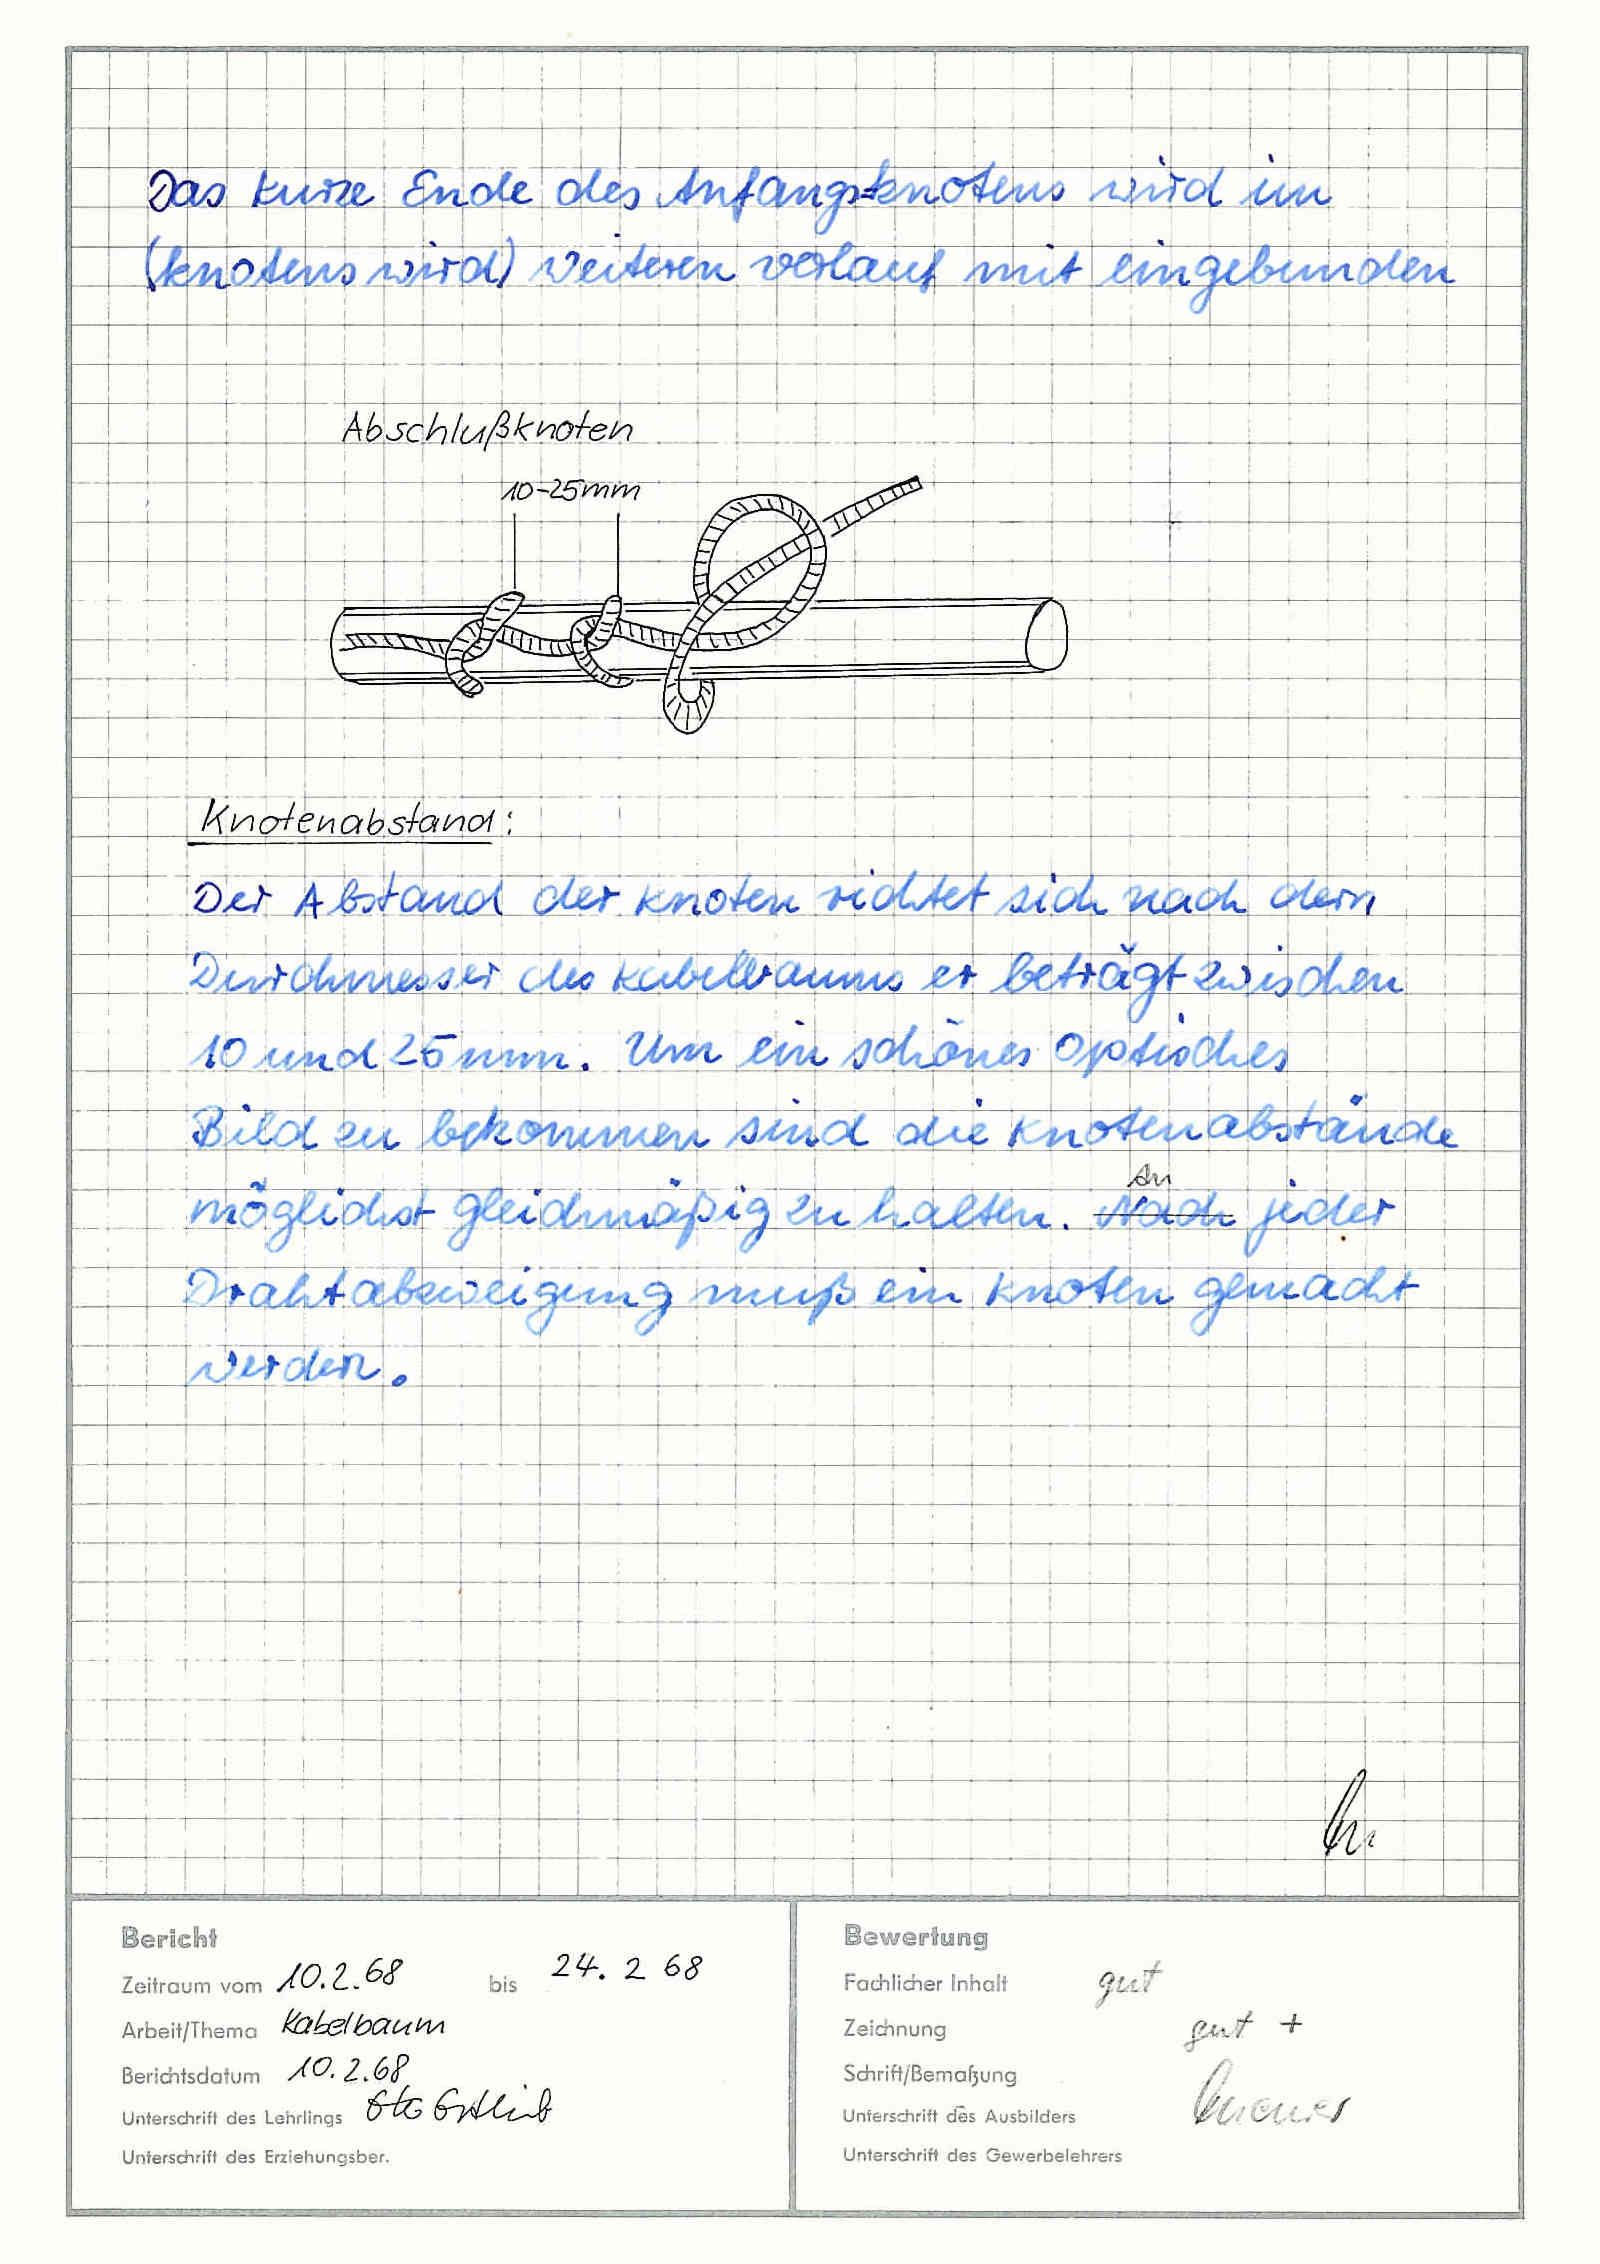 Das kurze Ende des Anfangsknotens wird im
(knotens wird) weiteren verlauf mit eingebunden
Abschlußknoten
10-25mm
Knotenabstand:
Der Abstand der Knoten richtet sich nach dem
Durchmesser des Kabelbaums er beträgt zwischen
10 und 25 mm. Um ein schönes Optisches
Bild zu bekommen sind die Knotenabstände
An
möglichst gleichmäßig zu halten. Nach jeder
Drahtabzweigung muß ein Knoten gemacht
werden.
Bericht
Zeitraum vom 10.2.68 bis 24. 2 68
Arbeit/Thema Kabelbaum
Berichtsdatum 10.2.68
Unterschrift des Lehrlings
Unterschrift des Erziehungsber.
Bewertung
Fachlicher Inhalt gut
Zeichnung gut +
Schrift/Bemaßung
Unterschrift des Ausbilders
Unterschrift des Gewerbelehrers